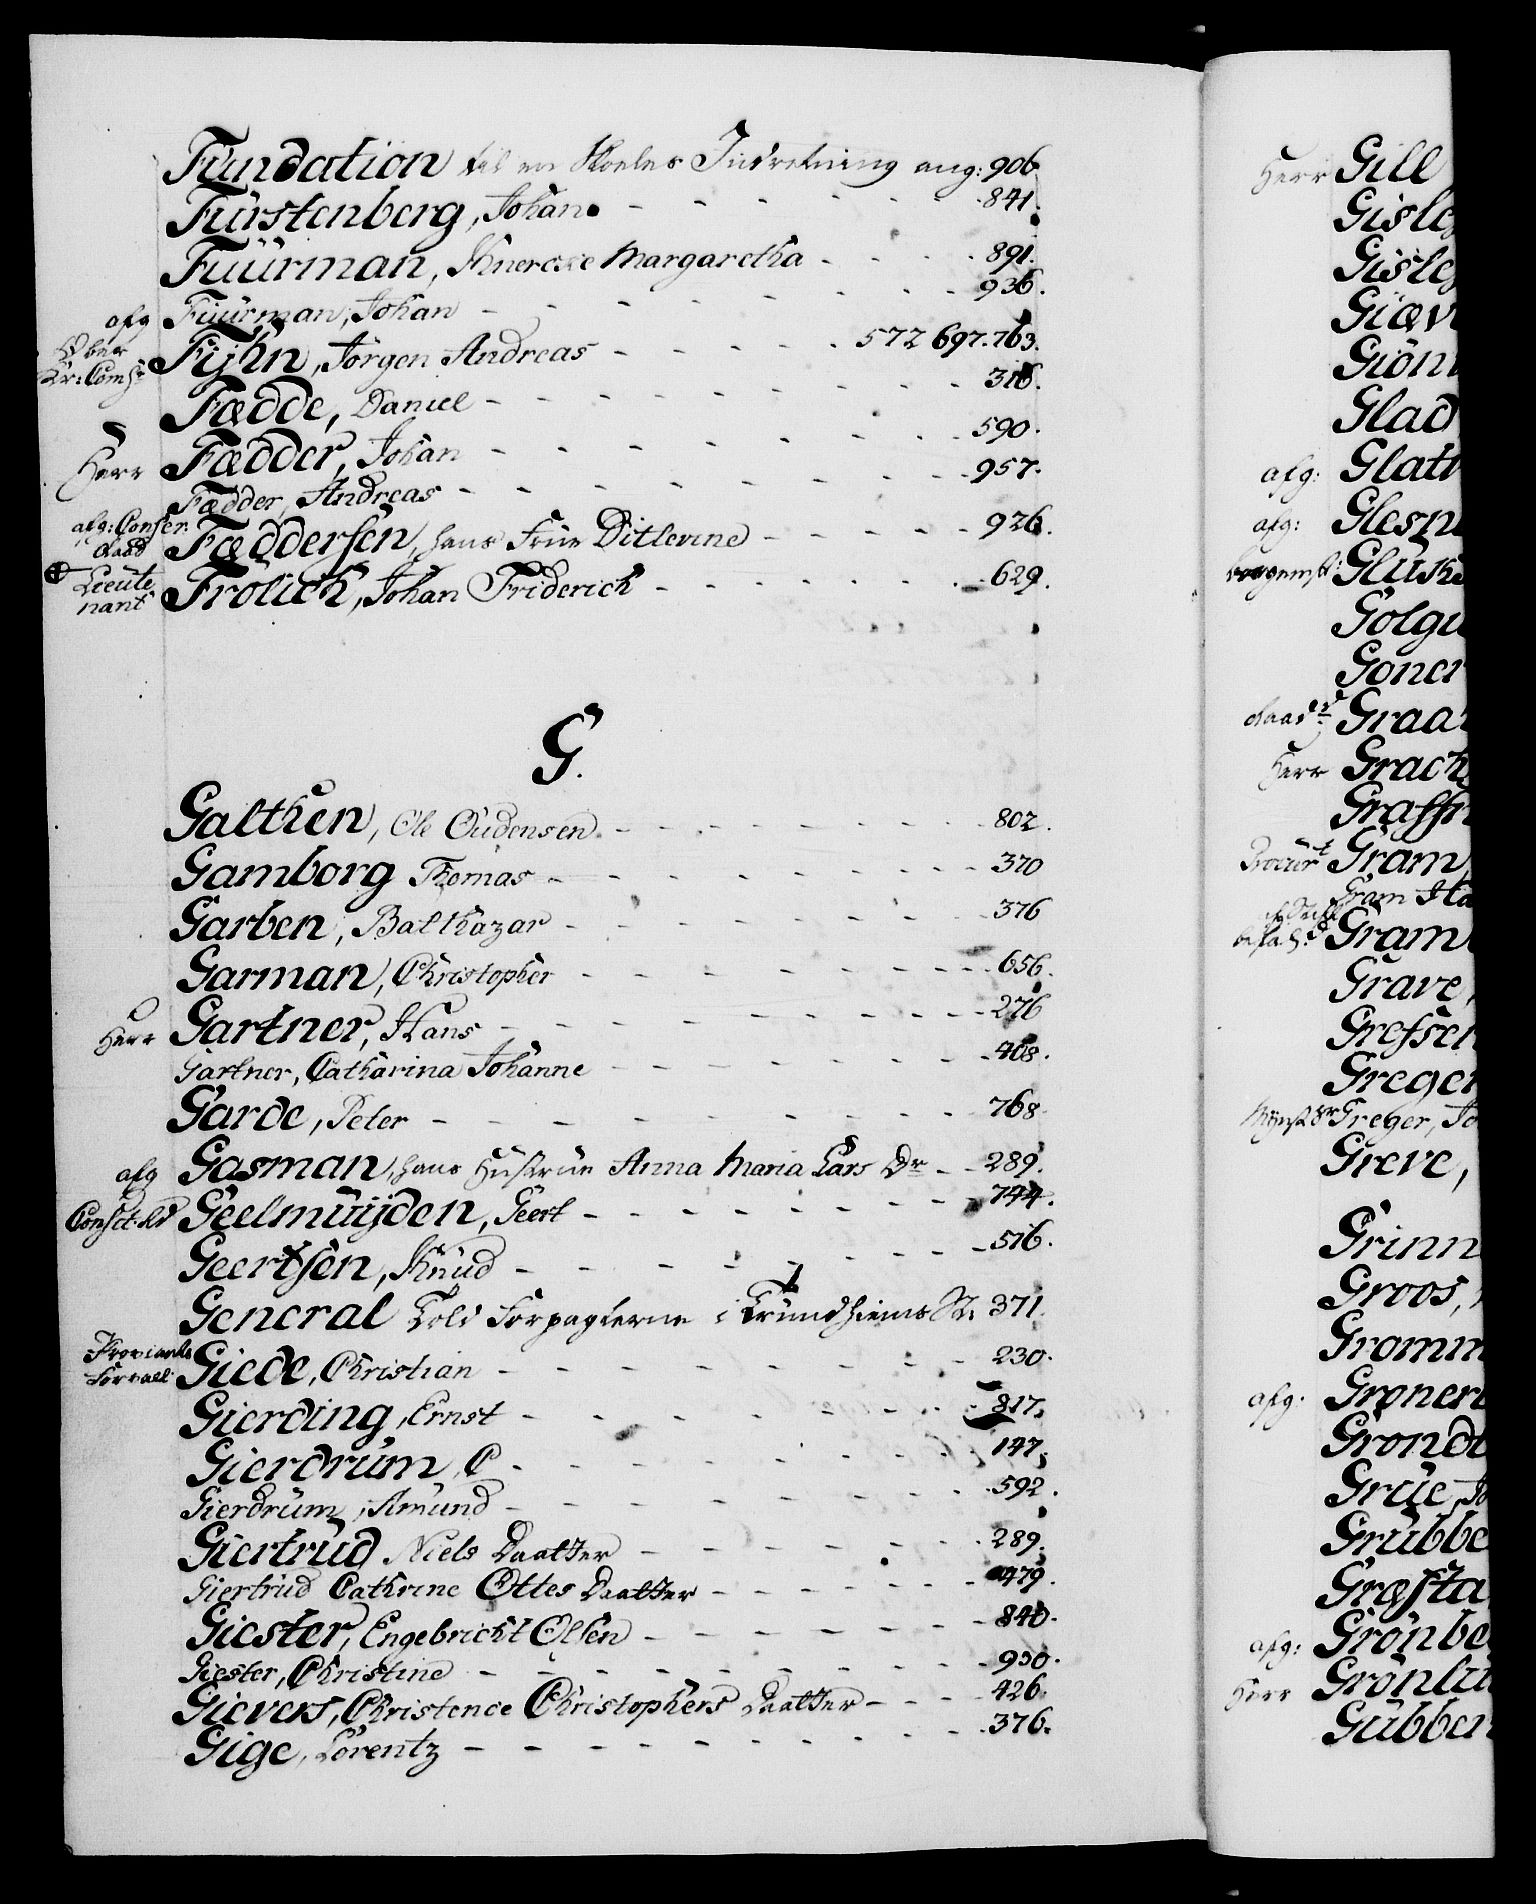 Fundation til en Skoeles Indretning ang: 906
Fürstenberg, Johan - - - - - - 841.
Fuürman, Margaretha - - - - 891.
Fuürman, Johan - - - - - - 936.
afg
Ober Kr: Coms: Fijhn, Jörgen Andreas - - - - - 572 697. 763.
Fædde, Daniel - - - - - - - 316.
Herr Fædder, Johan - - - - - - - 590.
Fædder, Andreas - - - - - - - 957.
afg: Conser. Raad Fæddersen, hans Frue Ditlevine - - - - - 926.
Lieutenant Frölich, Johan Friderich - - - - - - 629.
G.
Galthen, Ole Oudensen - - - - - - - 802.
Gamborg Thomas - - - - - - - - 370
Garben, Balthazar - - - - - - - - 376
Garman, Christopher - - - - - - - - 656.
Herr Gartner, Hans - - - - - - - - 276
Gartner, Catharina Johanne - - - - - - - 408.
Garde, Peter - - - - - - - - 768.
afg Gasman, hans Hustrue Anna Maria Lars Dr - - 289.
Geelmuijden, Geert - - - - - - - - 744.
Geertsen, Knud - - - - - - - - 516.
General Told Forpagterne i Trundhiems St. 371.
Proviants Forvalt: Giede, Christian - - - - - - - - 230.
Gierding, Ernst - - - - - - - - 817.
Gierdrum, C - - - - - - - - 147.
Gierdrum, Amund - - - - - - - - 592.
Giertrud Niels Daatter - - - - - - - 289.
Giertrud Cathrine Ottes Daatter - - - - - - 479.
Giester, Engebricht Olsen - - - - - - - 840.
Giester, Christine - - - - - - - - 930.
Gievers, Christence Christophers Daatter - - - - 426.
Gige, Lorentz - - - - - - - - 376.
Herr Gill
Gisle
Gisle
Giæv
Giön
Glad
afg: Glat
afg: Glesn
Glush
Golgu
Goner
Graa
Herr Grach
Graff
Procurt Gram,
Gram Ha
Gram
Grave,
Grefsen
Greger
Greger, Jo
Greve,
Grinn
Groos,
Gromm
afg. Groner
Grondt
Grue, Jo
Grubbe
Græsta
afg: Grönbe
Herr Grönlu
Gubber